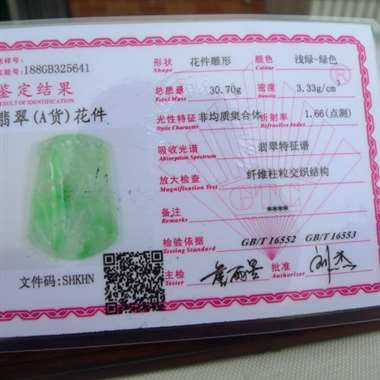 送样号:
验号: 188GB325641
鉴定结果
RESULT OF IDENTIFICATION
翡翠(A货)花件
文件码:SHKHN
形状 花件雕形 颜色 浅绿-绿色
Shape Colour
总质量 30.70g 密度 3.33g/cm³
Total Mass Density
光性特征 非均质集合体 折射率 1.66(点测)
Optic Character Refractive Index
吸收光谱 翡翠特征谱
Absorption Spectrum
放大检查 纤维柱粒交织结构
Magnification Test
备注 ****
Remarks
检验依据 GB/T 16552 GB/T 16553
Testing Standard
主检 批准